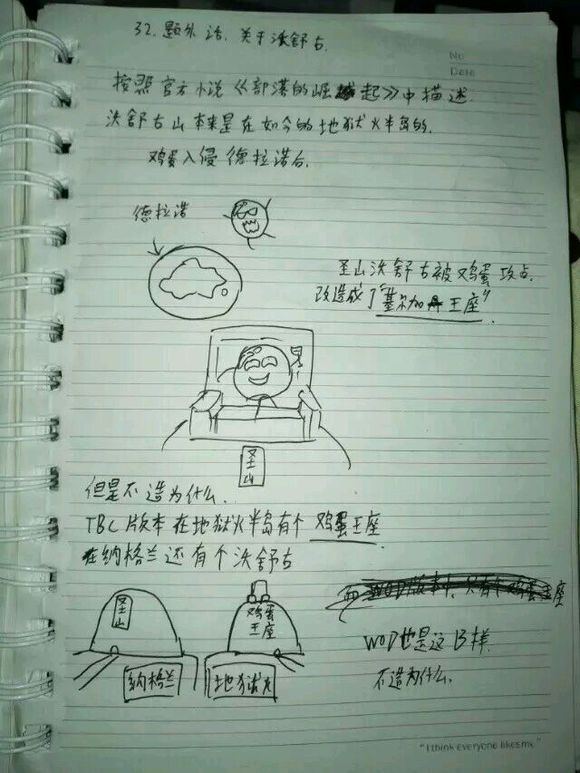 32. 题外话. 关于沃舒古.
No
Date
按照官方小说《部落的崛起》中描述
沃舒古山本来是在如今的地狱火半岛的.
鸡蛋入侵德拉诺后.
德拉诺
圣山沃舒古被鸡蛋攻占.
改造成了"基尔加丹王座"
圣山
但是不造为什么.
TBC版本在地狱火半岛有个 鸡蛋王座
在纳格兰还有个沃舒古
圣山
鸡蛋
王座
纳格兰
地狱火
WOD也是这B样.
不造为什么.
"I think everyone likes me"